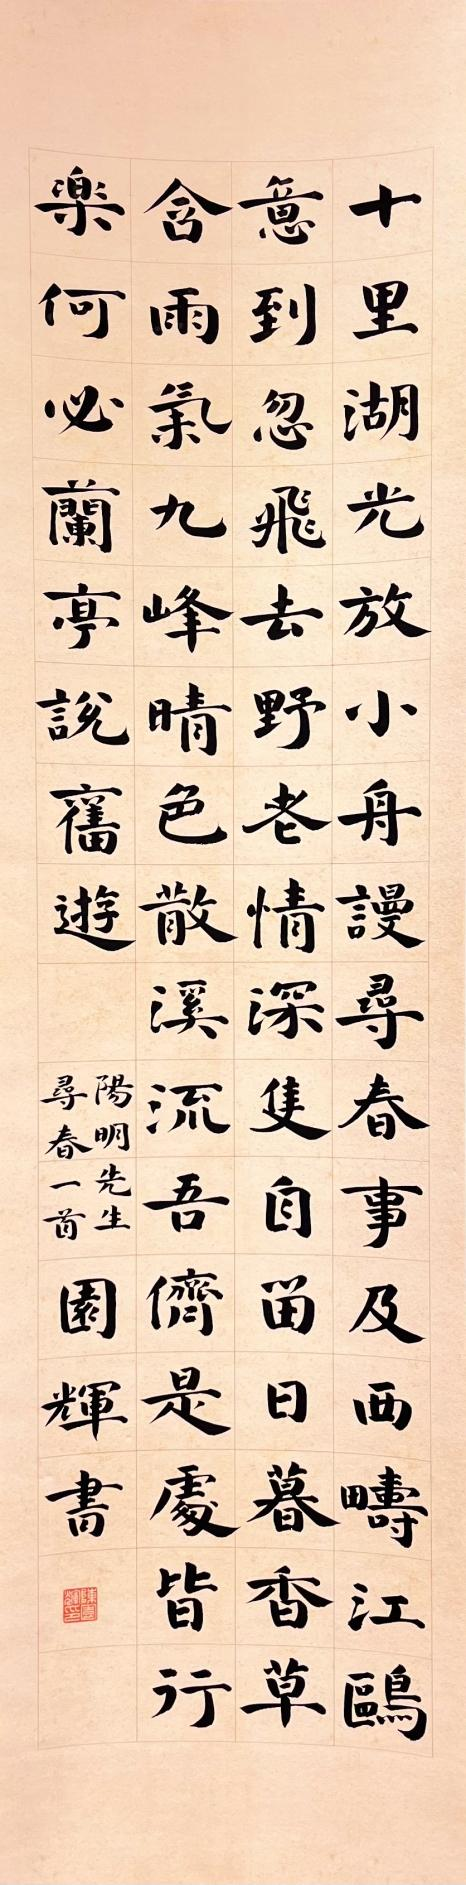 十里湖光放小舟謾尋春事及西疇江鷗
意到忽飛去野老情深隻自留日暮香草
含雨氣九峰晴色散溪流吾儕是處皆行
樂何必蘭亭說舊遊
陽明先生
尋春一首
園輝書
陳園輝印